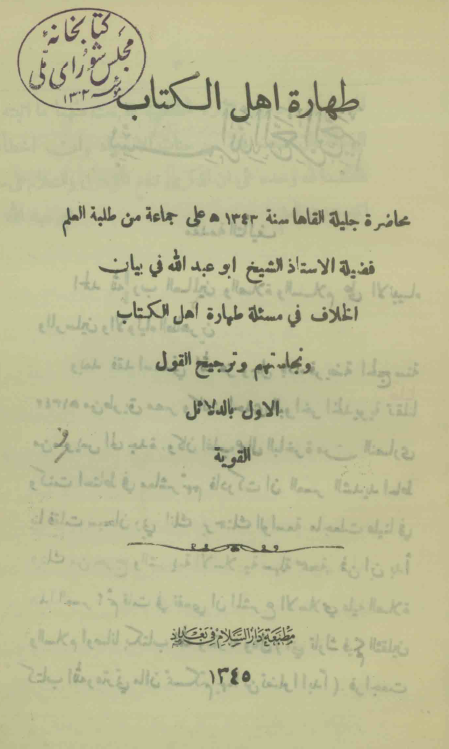 كتابخانهٔ
مجلس شورای ملی
١٣٠٢
طهارة اهل الكتاب
محاضرة جليلة القاها سنة ١٣٤٣ ه على جماعة من طلبة العلم
فضيلة الاستاذ الشيخ ابو عبد الله في بيان
الخلاف في مسئلة طهارة اهل الكتاب
ونجاستهم وترجيح القول
الاول بالدلائل
القوية
مطبعة دار السلام في بغداد
١٣٤٥